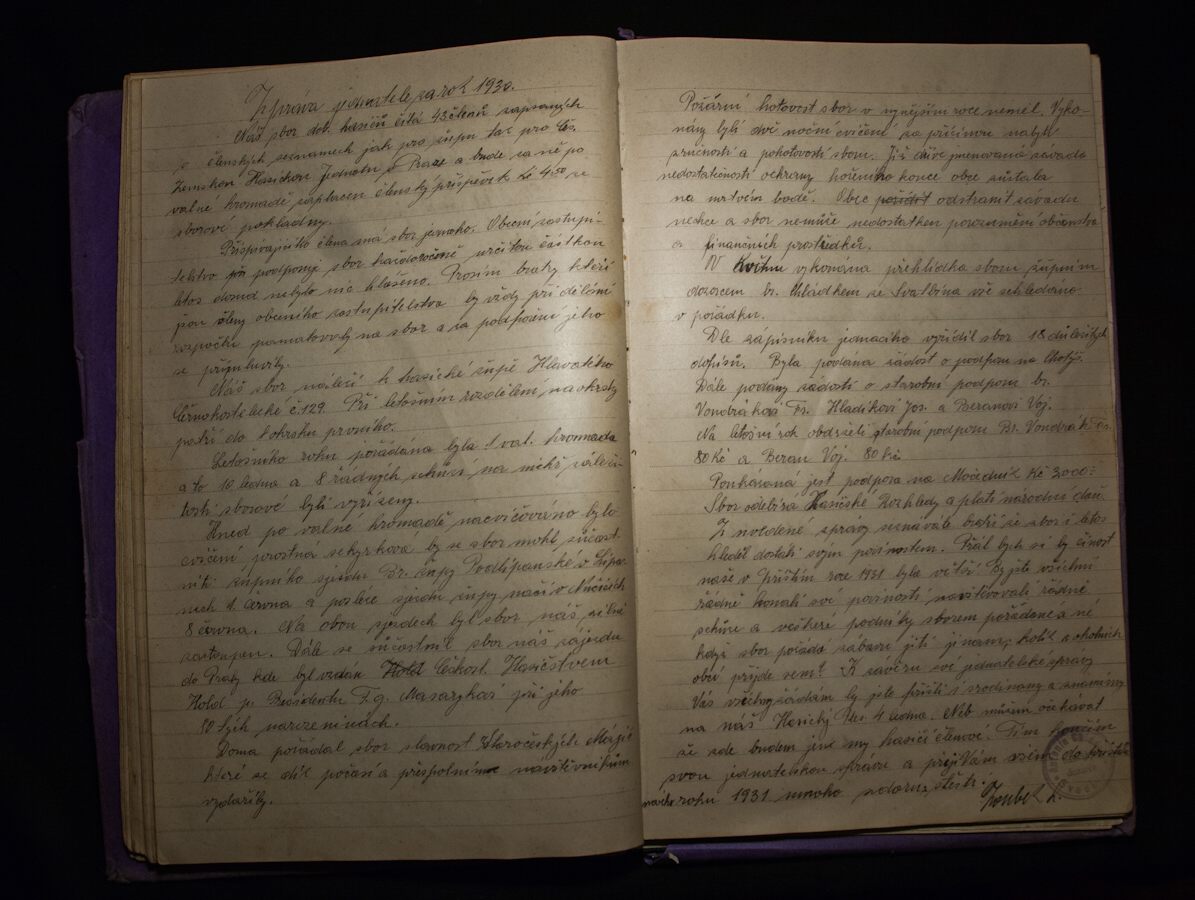 Zpráva jednatele za rok 1930.
Náš sbor dob. hasičů čítá 43 členů zapsaných
v členských seznamech jak pro župu tak pro Čes.
Zemskou Hasičkou Jednotu v Praze a bude za ně po
valné hromadě zaplacen členský příspěvek Kč 4·50 ze
sborové pokladny.
Přispívajícího člena má sbor jednoho. Obecní zastupi-
telstvo podporuje sbor každoročně určitou částkou
letos domů nebylo nic hlášeno. Prosím bratry kteří
jsou členy obecního zastupitelstva by vždy při dělání
rozpočtu pamatovaly na sbor a za podpoření jeho
se přimluvily.
Náš sbor náleží k hasické župě Hlavatého
Černokostelecké č. 129. Při letošním rozdělení na okrsky
patří do okrsku prvního.
Letošního roku pořádána byla 1 val. hromada
a to 10 ledna a 8 řádných schůzí na nichž záleži-
tosti sborové byli vyřízeny.
Hned po valné hromadě nacvičováno bylo
cvičení prostná sekyrková by se sbor mohl súčast-
niti župního sjezdu Br. župy Podlipanské v Lipa-
nech 1. června a posléze sjezdu župy naší v Nučicích
8 června. Na obou sjezdech byl sbor náš silně
zastoupen. Dále se súčastnil sbor náš zájezdu
do Prahy kde byl vzdán Hold Českosl. Hasičstvem
Hold p. Presidentu T. g. Masarykovi při jeho
80 tých narozeninách.
Doma pořádal sbor slavnost Staročeských Májů
které se dík počasí a přespolním návštěvníkům
vydařily.
Požární hotovost sbor v nynějším roce neměl. Vyko-
nány byli dvě noční cvičení za příčinou nabytí
zručnosti a pohotovosti sboru. Již dříve jmenovaná závada
nedostatečnosti ochrany hořeního konce obce zůstala
na mrtvém bodě. Obec odstranit závadu
nechce a sbor nemůže nedostatkem porozumění občanstva
a finančních prostředků.
V Květnu vykonána přehlídka sboru župním
dozorcem br. Chládkem ze Svatbína vše shledáno
v pořádku.
Dle zápisníku jednacího vyřídil sbor 18 důležitých
dopisů. Byla podána žádost o podporu na Motýč.
Dále podány žádosti o starobní podporu br.
Vondrákovi Fr. Hladíkovi Jos. a Beranovi Voj.
Na letošní rok obdrželi starobní podporu Br. Vondrák Fr.
80 Kč a Beran Voj. 80 Kč
Poukázaná jest podpora na Kč 3000·-
Sbor odebírá Hasičské Rozhledy a platí národní daň.
Z uvedené zprávy seznáváte bratři že sbor i letos
hleděl dostáti svým povinostem. Přál bych si by činost
naše v příštím roce 1931 byla větší. By jste všichni
řádně konali své povinosti navštěvovali řádně
schůze a veškeré podniky sborem pořádané a né
když sbor pořádá zábavu jíti jinam, kolik z okolních
obcí přijde sem? K závěru své jednatelské zprávy
Vás všechny žádám by jste přišli i s rodinami a známými
na náš Hasičký Ples 4 ledna. Neb můžem očekávat
že zde budem jen my hasiči členové. Tím končím
svou jednatelskou zprávu a přeji Vám všem do příštího
roku 1931 mnoho zdaru a štěstí.